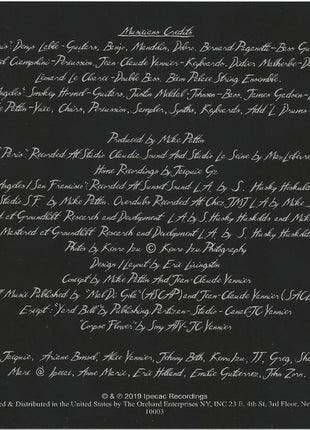 Musicians Credits
Paris": Denys Lable-Guitars, Banjo, Mandolin, Dobro, Bernard Paganotti-Bass Guitar
Ciampolini-Percussion, Jean-Claude Vannier-Keyboards, Didier Malherbe-
Léonard Le Cloarec-Double Bass, Bécon Palace String Ensemble.
Angeles: Smokey Hormel-Guitars, Justin Meldal-Johnsen-Bass, James Gadson-
Patton-Voice, Chairs, Percussion, Sampler, Synths, Keyboards, Add'L Drums
Produced by Mike Patton
Paris": Recorded At Studio Claudia Sound And Studio La Seine by Max Lefevre
Home Recordings by Jacquie Gz
Angeles/San Francisco": Recorded At Sunset Sound L.A. by S. Husky Hoskulds
Studio S.F by Mike Patton. Overdubs Recorded At Chez JMJ L.A by
at Groundlift Research and Development L.A by S. Husky Hoskulds and
Mastered at Groundlift Research and Development LA by S. Husky Hoskulds
Photo by Kenro Izu © Kenro Izu Photography
Design/Layout by Eric Livingston
Concept by Mike Patton And Jean-Claude Vannier
Music Published by "Mail Do Gole" (ASCAP) and Jean-Claude Vannier (SACEM)
Except: "Yard Bull" by Publishing Partizan-Studio-Canal-JC Vannier
Corpse Flower" by Sony ATV-JC Vannier
Jacquie, Ariane Bonzel, Alice Vannier, Johnny Beth, Kenro Izu, TT, Greg,
Marc @ Ipecac, Anne Marie, Eric Holland, Emilie Gutierrez, John Zorn.
© & ℗ 2019 Ipecac Recordings
& Distributed in the United States by The Orchard Enterprises NY, INC 23 E. 4th St, 3rd Floor,
10003